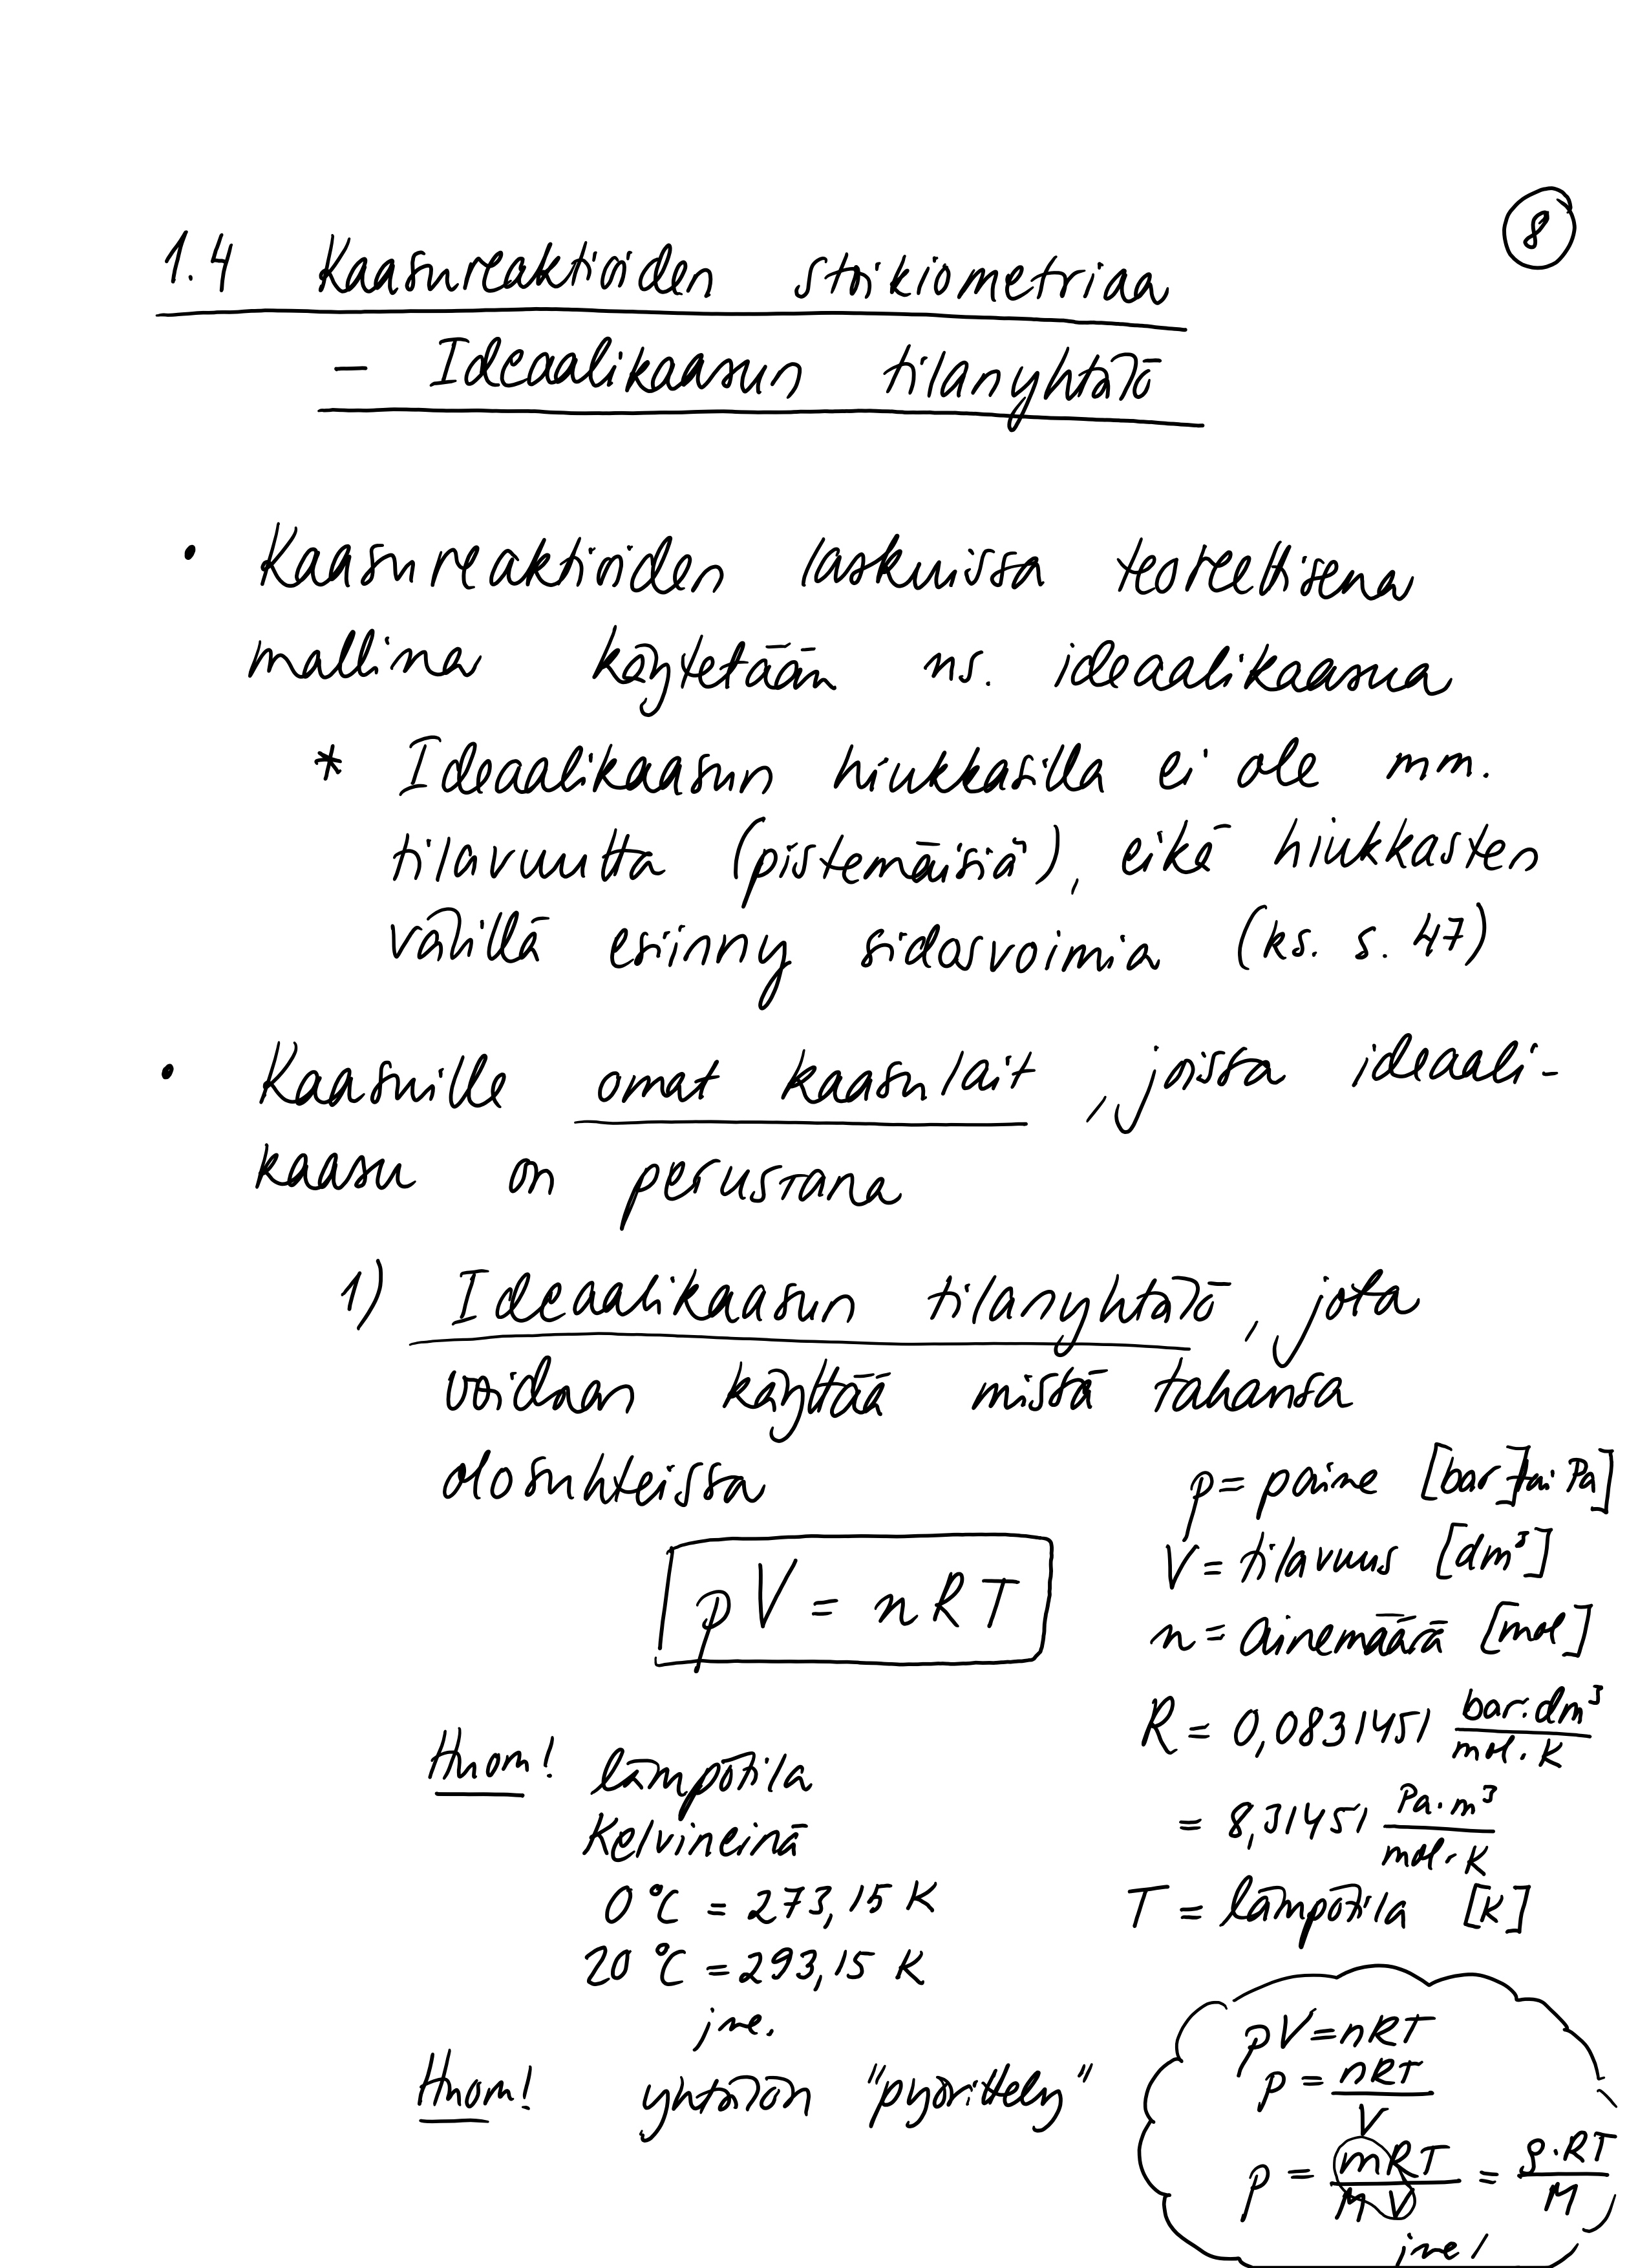 8
1.4 Kaasureaktioiden stoikiometriaa
– Ideaalikaasun tilanyhtälö
• Kaasureaktioiden laskuissa teoreettisena
mallina käytetään ns. ideaalikaasua
* Ideaalikaasun hiukkasilla ei ole mm.
tilavuutta (pistemäisiä), eikä hiukkasten
välillä esiinny sidosvoimia (ks. s. 47)
• Kaasuille omat kaasulait, joissa ideaali-
kaasu on perustana
1) Ideaalikaasun tilanyhtälö, jota
voidaan käyttää missä tahansa
olosuhteissa
pV = nRT
p = paine [bar] tai Pa]
V = tilavuus [dm³]
n = ainemäärä [mol]
R = 0,0831451 bar·dm³ / mol·K
= 8,31451 Pa·m³ / mol·K
T = lämpötila [K]
Huom! lämpötila
Kelvineinä
0 °C = 273,15 K
20 °C = 293,15 K
jne.
Huom! yhtälön "pyörittely"
pV = nRT
p = nRT / V
p = mRT / M V = ρ·RT / M
jne!